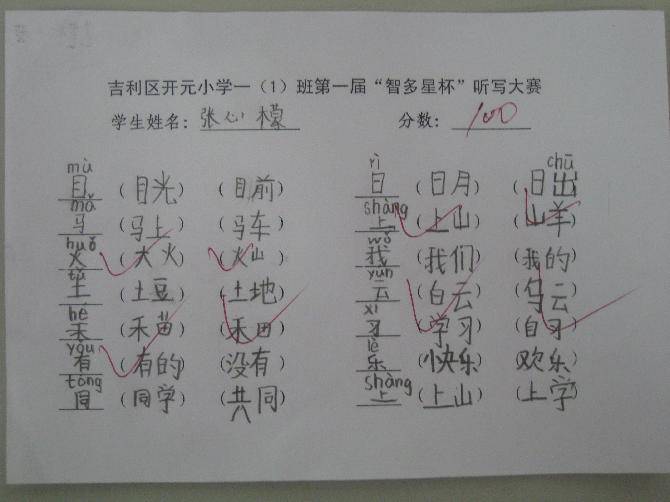 吉利区开元小学一（1）班第一届“智多星杯”听写大赛
学生姓名：张心檬 分数：100
mù rì chū
目（目光 目前） 日（日月 日出）
mǎ shàng
马（马上 马车） 上（上山 山羊）
huǒ wǒ
火（大火 火山） 我（我们 我的）
tǔ yún
土（土豆 土地） 云（白云 乌云）
hé xí
禾（禾苗 禾田） 习（学习 自习）
yǒu lè
有（有的 没有） 乐（快乐 欢乐）
tóng shàng
同（同学 共同） 上（上山 上学）